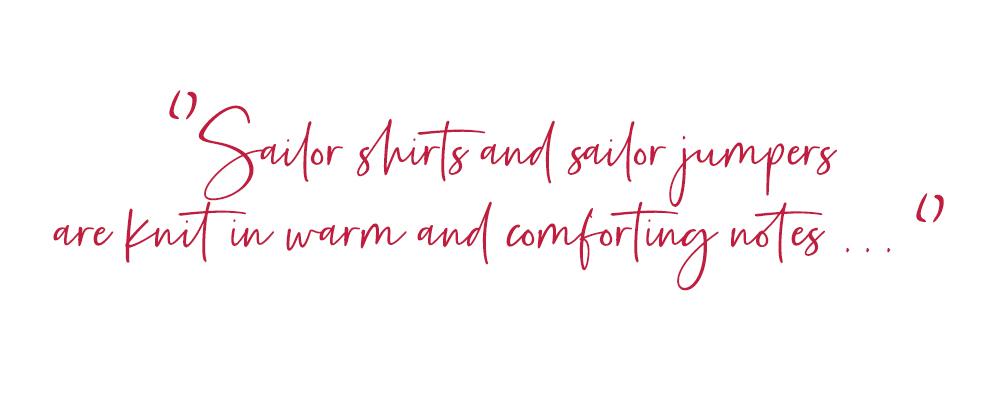 "Sailor shirts and sailor jumpers
are knit in warm and comforting notes ... "